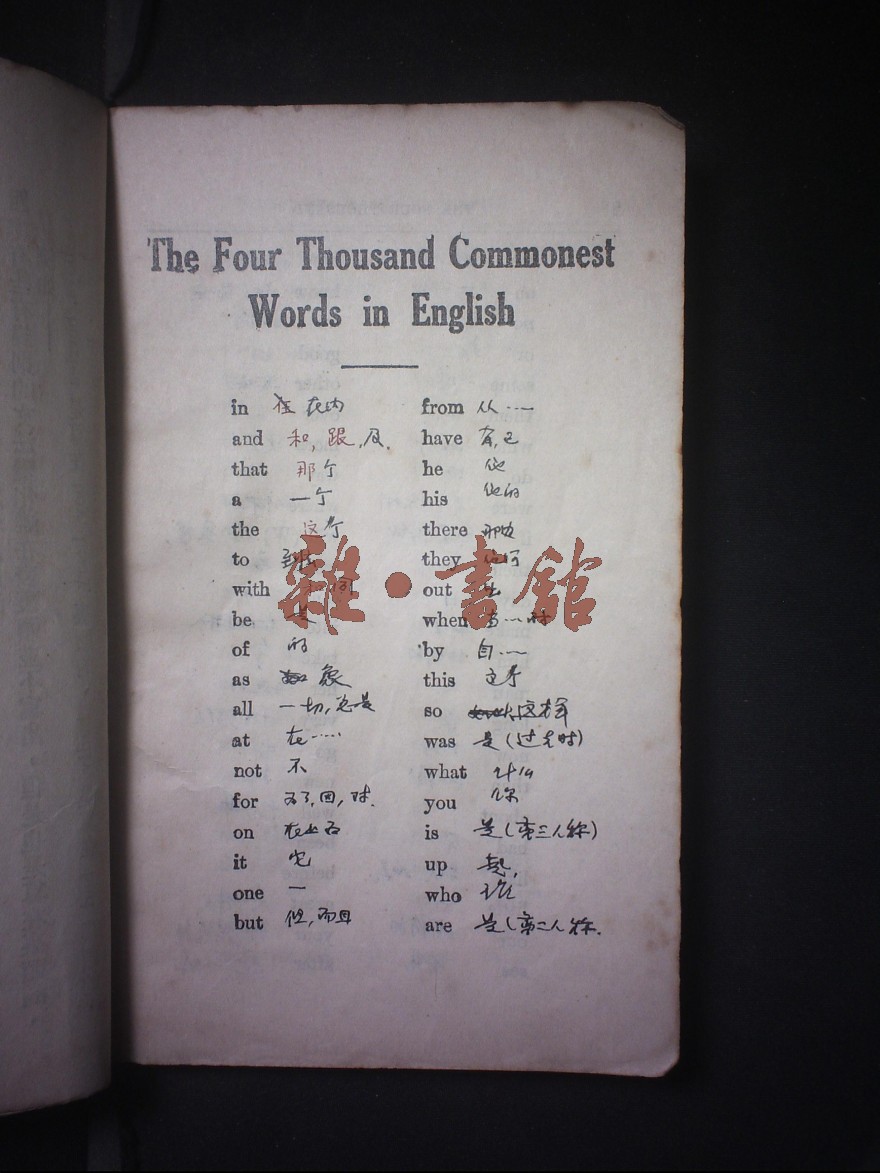 The Four Thousand Commonest
Words in English
in 在内
and 和, 跟, 及.
that 那个
a 一个
the 这个
to 到
with
be 是
of 的
as 象
all 一切, 总是
at 在……
not 不
for 为了, 因, 对.
on 在上面
it 它
one 一
but 但, 而且
from 从……
have 有, 已
he 他
his 他的
there 那边
they 他们
out 出
when 当…时
by 自……
this 这个
so 这样
was 是(过去时)
what 什么
you 你
is 是(第三人称)
up 起,
who 谁
are 是(第二人称.
雜·書館